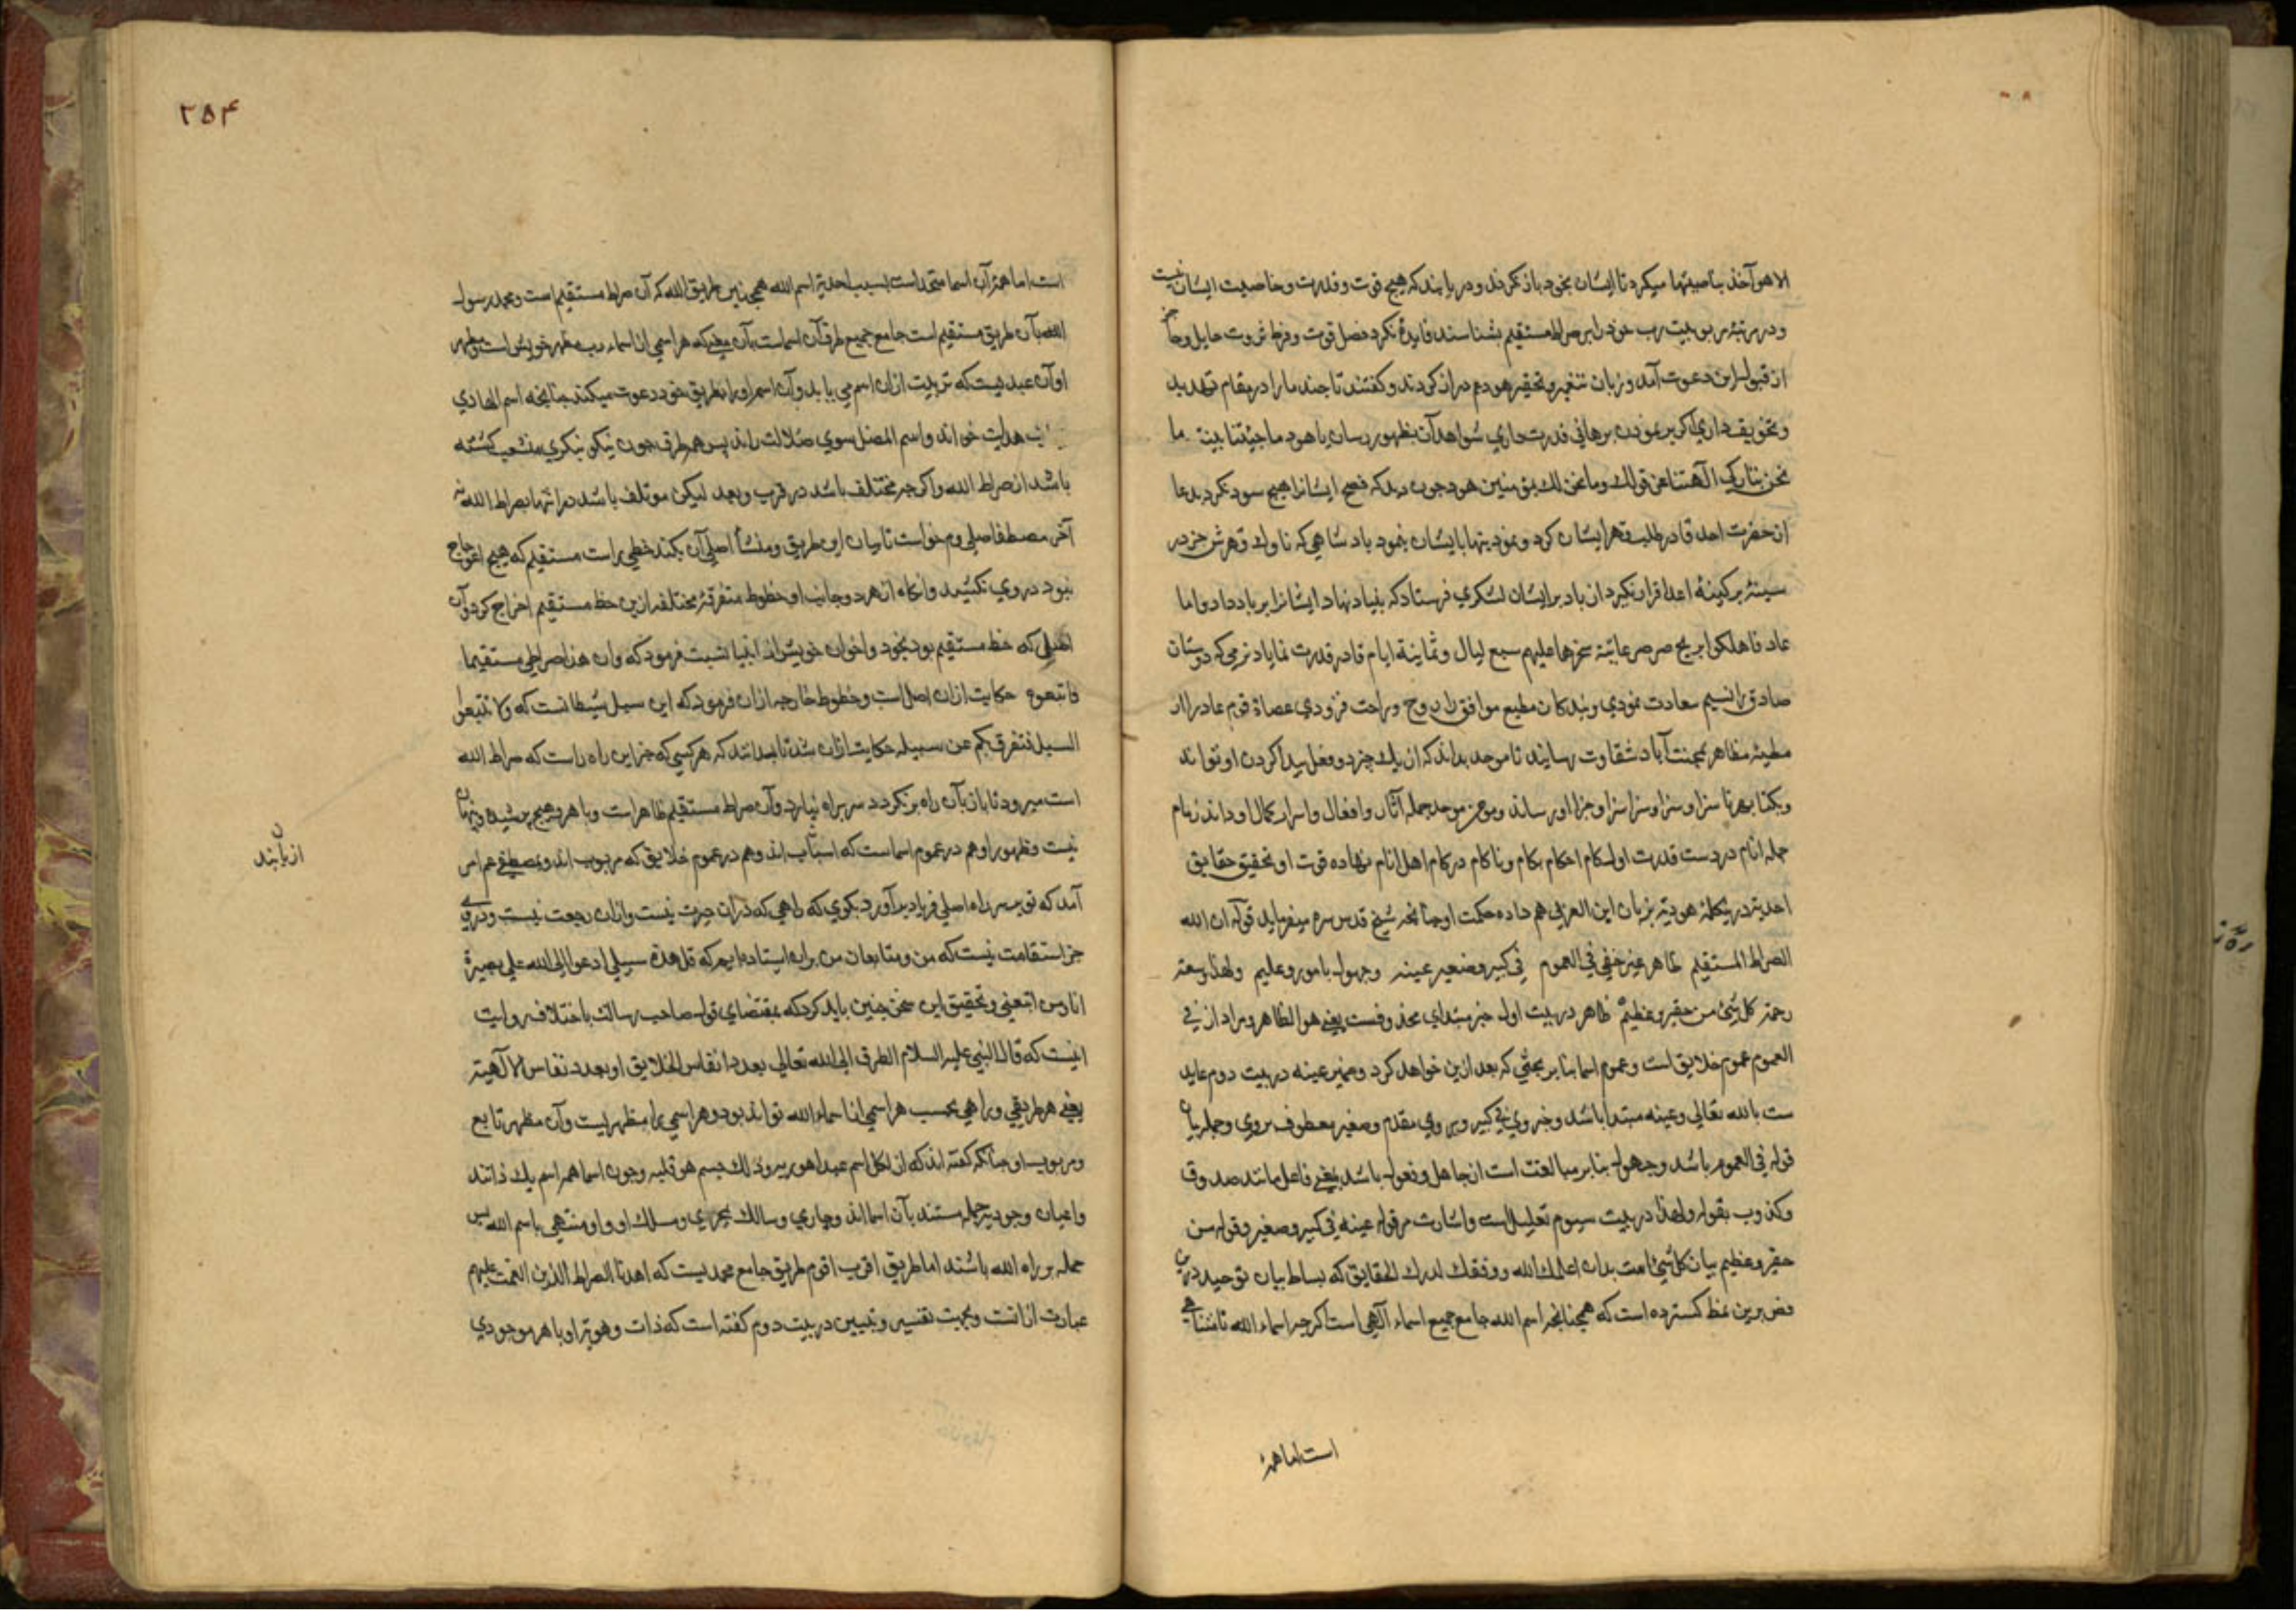 الا هو آخذ بناصیتها میکرد تا ایشان بخود باز نکرند و دریابند که هیچ قوت و قدرت و خاصیت ایشان نیست
و در مرتبهٔ ربوبیت رب خود را بر صراط مستقیم بشناسند فایدهٔ نکرد فضل قوت و فرط ثروت حایل و حاجز
از قبول این دعوت آمد و زبان و تحقیر هود دراز کردند و کفتند تا چند ما را در مقام تهدید
و تخویف داری اکر بر نمودن برهانی قدرت داری شواهد آن بظهور رسان یا هود ما جئتنا ببینة ما
نحن بتارکی آلهتنا عن قولك وما نحن لك بمؤمنین هود چون دید که نصح ایشانرا هیچ سود نکرد بدعا
از حضرت احد قادر طلب قهر ایشان کرد و بایشان نمود پادشاهی که ناوك قهرش جز در
سینهٔ پر کینهٔ اعدا قرار نکیرد از باد بر ایشان لشکری فرستاد که بنیاد نهاد ایشانرا بر باد داد واما
عاد فاهلکوا بریح صرصر عاتیة سخرها علیهم سبع لیال وثمانیة ایام قادر قدرت نمایاد نرمی که دوستان
صادق را نسیم سعادت نمودی و بندکان مطیع موافق را روح و راحت فزودی عصاة قوم عاد را از
مطیهٔ مظاهر بمحنت آباد شقاوت رسانید تا موحد بداند که از یك چیز دو فعل پیدا کردن او تواند
سزا و سزا و جزا او رساند و موحد جمله آثار و افعال و اسرار کمال او داند زمام
جمله انام در دست قدرت او لکام احکام بکام و ناکام در کام اهل انام نهاده قوت او تحقیق حقایق
احدیة در هیکل هودیة بزبان ابن العربی هم داده حکمت او چنانچه شیخ قدس سره میفرماید قوله ان الله
الصراط المستقیم ظاهر غیر خفی فی العموم فی کبیر وصغیر عینه وجهول بامور وعلیم ولهذا وسعت
رحمته کل شیٔ من حقیر وعظیم ظاهر در بیت اول خبر مبتدای محذوفست یعنی هو الظاهر و مراد از فی
العموم عموم خلایق است و عموم اسما بنا بر بحثی که بعد ازین خواهد کرد و ضمیر عینه در بیت دوم عاید
ست بالله تعالی و عینه مبتدا باشد و خبر وی فی کبیر و بر وی مقدم وصغیر معطوف بر وی و جمله بیان
قوله فی العموم باشد وجهول بنا بر مبالغت است از جاهل و فعول باشد بمعنی فاعل مانند صدوق
وکذوب بقوله ولهذا در بیت سیوم تعلیل است واشارت بر قوله عینه فی کبیر وصغیر وقوله من
حقیر وعظیم بیان کل شیٔ است بدان اعلمك الله ووفقك لدرك الحقایق که بساط بیان توحید درین
فص برین نمط کسترده است که همچنانچه اسم الله جامع جمیع اسماء الهی است اکرچه اسماء الله نامتناهی
است اما همهٔ
۲۵۴
است اما همهٔ آن اسما متحد است بسبب احدیة اسم الله همچنین طریق الله که آن صراط مستقیم است و محمد رسول
الله بآن طریق مستقیم است جامع جمیع طرق آن اسماست بآن معنی که هر اسمی از اسماء رب مظهر خویش است و مظهر
او آن عبدیست که تربیت از آن اسم می یابد و آن اسم او را بطریق خود دعوت میکند چنانچه اسم الهادی
هدایت خواند و اسم المضل سوی ضلالت راند پس همه طرق چون نیکو بنکری منشعب کشته
باشد از صراط الله و اکرچه مختلف باشد در قرب و بعد لیکن موتلف باشد در انتها بصراط الله نه
آخر مصطفا صلی وم خواست تا بیان این طریق و منشأ اصلی آن بکند خطی راست مستقیم که هیچ اعوجاج
نبود در وی بکشید وانکاه از هر دو جانب او خطوط متفرقهٔ مختلفه ازین خط مستقیم اخراج کرد و آن
اصلی که خط مستقیم بود بخود و اخوان خویش از انبیا نسبت فرمود که وان هذا صراطی مستقیما
فاتبعوه حکایت از آن اصل است و خطوط خارجه از آن فرمود که این سبل شیطانست که ولا تتبعوا
السبل فتفرق بکم عن سبیله حکایت از آن شد تا بدانند که هر کسی که جز این راه راست که صراط الله
است میرود تا باز بآن راه بر نکردد سر براه نیارد و آن صراط مستقیم ظاهر است و با هیچ پوشیده و پنهان
نیست و ظهور او هم در عموم اسماست که ارباب اند و هم در عموم خلایق که مربوب اند و مصطفی هم
ازیابند
آمد که تو بر سر راه اصلی فریاد برآورد بکوی که راهی که در آن حیرت نیست وازان رجعت نیست ودروی
جز استقامت نیست که من و متابعان من بر آن ایستاده ایم که قل هذه سبیلی ادعوا الی الله علی بصیرة
انا ومن اتبعنی و تحقیق این سخن چنین باید کرد که بمقتضای قول صاحب رسالت باختلاف روایت
اینست که قال النبی علیه السلام الطرق الی الله تعالی بعدد انفاس الخلایق او بعدد نفاس الالهیة
یعنی هر طریقی و راهی بحسب هر اسمی از اسماء الله تواند بود و هر اسمی را مظهریست و آن مظهر تابع
و مربوب او چنانکه کفته اند که ان لکل اسم عبدا هو ربه وذلك جسم هو قلبه و چون اسما همه اسم یك ذاتند
و اعیان وجودیه جمله مستند بآن اسما اند و جاری و سالك بمجری و مسلك او و او منتهی باسم الله پس
جمله بر راه الله باشند اما طریق اقرب اقوم طریق جامع محمدیست که اهدنا الصراط الذین انعمت علیهم
عبارت از انست و بجهت تفسیر و تبیین در بیت دوم کفته است که ذات و هویة او با هر موجودی